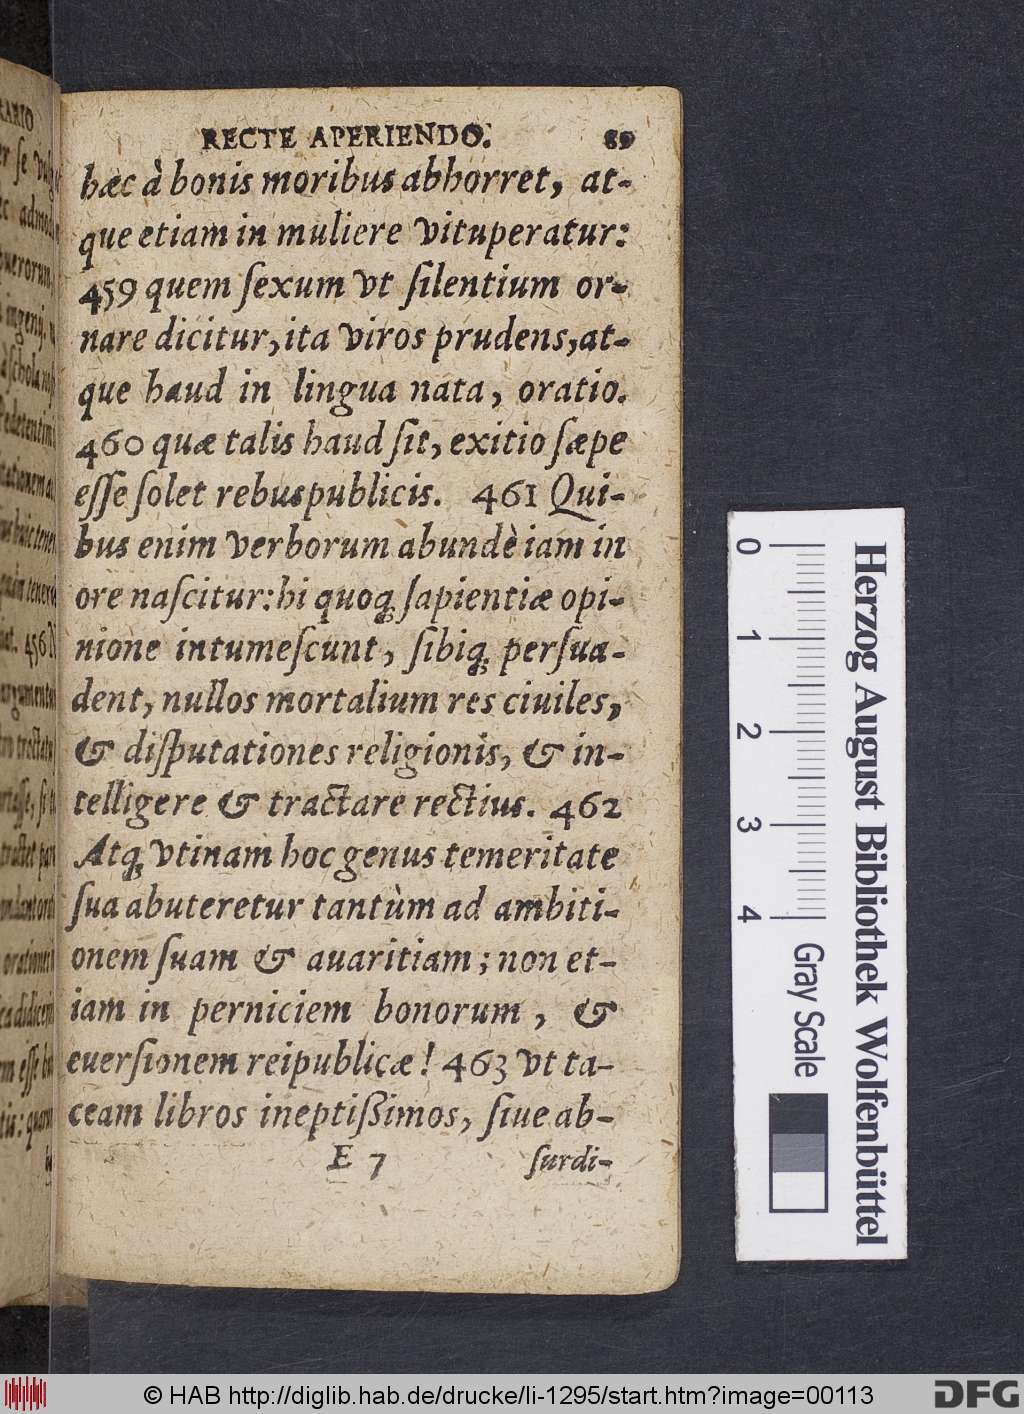 RECTE APERIENDO. 89
hæc à bonis moribus abhorret, at-
que etiam in muliere vituperatur:
459 quem ſexum vt ſilentium or-
nare dicitur, ita viros prudens, at-
que haud in lingua nata, oratio.
460 quæ talis haud ſit, exitio ſæpe
eſſe ſolet rebuspublicis. 461 Qui-
bus enim verborum abundè iam in
ore naſcitur: hi quoq; ſapientiæ opi-
nione intumeſcunt, ſibiq; perſua-
dent, nullos mortalium res ciuiles,
& diſputationes religionis, & in-
telligere & tractare rectius. 462
Atq; vtinam hoc genus temeritate
ſua abuteretur tantùm ad ambiti-
onem ſuam & auaritiam; non et-
iam in perniciem bonorum, &
euerſionem reipublicæ! 463 vt ta-
ceam libros ineptiſſimos, ſiue ab-
E 7 ſurdi-
0 1 2 3 4 Gray Scale
Herzog August Bibliothek Wolfenbüttel
© HAB http://diglib.hab.de/drucke/li-1295/start.htm?image=00113
DFG